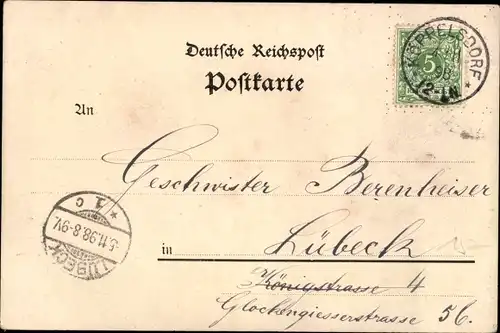 Deutsche Reichspost
Postkarte
KÖPPELSDORF
5
98
12-1N
An
Geschwister Berenheiser
1 c
5.11.98.8-9V.
LÜBECK
in Lübeck
Königstrasse 4
Glockengiesserstrasse 56.